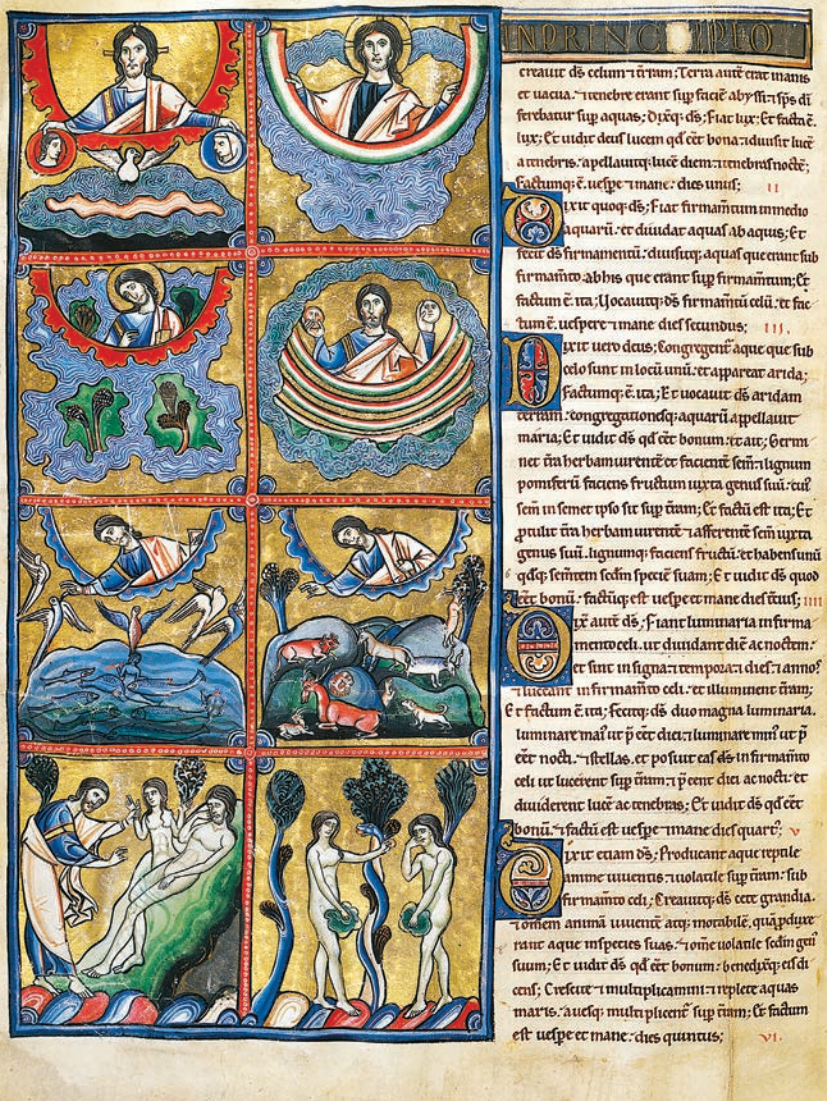 IN PRINCIPIO
creauit ds celum ⁊ t̄ram; Terra autē erat inanis
et uacua. ⁊ tenebre erant sup faciē abyssi. ⁊ sp̄s di
ferebatur sup aquas; Dixq; ds; Fiat lux; Et facta ē.
lux; Et uidit deus lucem qd eēt bona. ⁊ diuisit lucē
a tenebris. apellauitq; lucē diem. ⁊ tenebras noctē;
Factumq; ē. uespe ⁊ mane. dies unus; II
Dixit quoq; ds; Fiat firmam̄tum in medio
aquarū. et diuidat aquas ab aquis; Et
fecit ds firmamentū. diuisitq; aquas que erant sub
firmam̄to. ab his que erant sup firmam̄tum; Et
factum ē. ita; Uocauitq; ds firmam̄tū celū. et fac
tum ē. uespere ⁊ mane dies secundus; III.
Dixit uero deus; Congregent̄ aque que sub
celo sunt in locū unū. et appareat arida;
Factumq; ē. ita; Et uocauit ds aridam
terram. congregationesq; aquarū appellauit
maria; Et uidit ds qd eēt bonum. et ait; Germi
net t̄ra herbam uirentē et facientē sem̄. ⁊ lignum
pomiferū faciens fructum iuxta genus suū. cui'
sem̄ in semet ipso sit sup t̄ram; Et factū est ita; Et
ptulit t̄ra herbam uirentē ⁊ afferentē sem̄ iuxta
genus suū. lignumq; faciens fructū. et habens unū
qdq; sem̄tem sedm̄ speciē suam; Et uidit ds quod
eēt bonū. factūq; est uespe et mane dies t̄cius; IIII
Dixē autē ds; Fiant luminaria in firma
mento celi. ut diuidant diē ac noctem.
et sint in signa. ⁊ tempora. ⁊ dies. ⁊ annos
⁊ luceant in firmam̄to celi. et illuminent t̄ram;
Et factum ē. ita; fecitq; ds duo magna luminaria.
luminare mai' ut p̄ eēt diei. ⁊ luminare min' ut p̄
eēt nocti. ⁊ stellas. et posuit eas ds in firmam̄to
celi ut lucerent sup t̄ram. ⁊ p̄eent diei ac nocti. et
diuiderent lucē ac tenebras; Et uidit ds qd eēt
bonū. ⁊ factū est uespe ⁊ mane dies quart'; V
Dixit etiam ds; Producant aque reptile
anime uiuentis. ⁊ uolatile sup t̄ram. sub
firmam̄to celi; Creauitq; ds cete grandia.
⁊ omem animā uiuentē atq; motabilē. quā pduxe
rant aque in species suas. ⁊ ome uolatile sedm̄ gen'
suum; Et uidit ds qd eēt bonum. benedixq; eis di
cens; Crescite ⁊ multiplicamini. ⁊ replete aquas
maris. auesq; multiplicent̄ sup t̄ram; Et factum
est uespe et mane. dies quintus; VI.